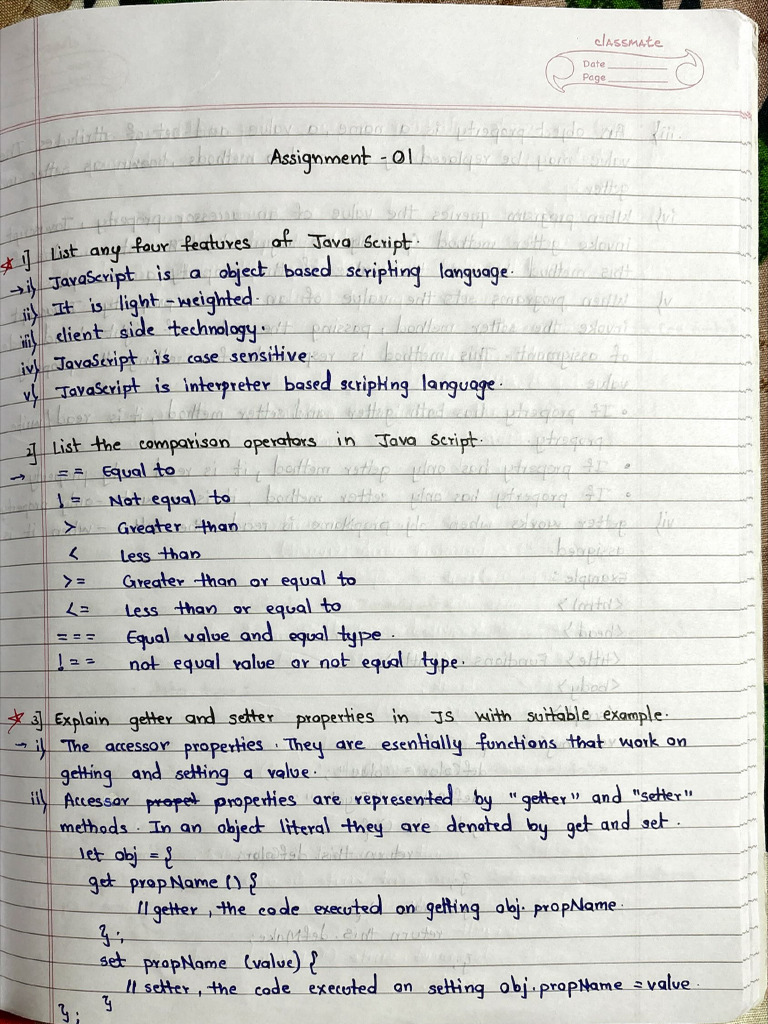 classmate
Date
Page
Assignment - 01
1] List any four features of Java Script.
→ i) JavaScript is a object based scripting language.
ii) It is light-weighted.
iii) client side technology.
iv) JavaScript is case sensitive
v) JavaScript is interpreter based scripting language.
2] List the comparison operators in Java Script.
→ == Equal to
!= Not equal to
> Greater than
< Less than
>= Greater than or equal to
<= Less than or equal to
=== Equal value and equal type.
!== not equal value or not equal type.
3] Explain getter and setter properties in JS with suitable example.
→ i) The accessor properties. They are esentially functions that work on
getting and setting a value.
ii) Accessor propet properties are represented by "getter" and "setter"
methods. In an object literal they are denoted by get and set.
let obj = {
get propName () {
// getter, the code executed on getting obj. propName.
};
set propName (value) {
// setter, the code executed on setting obj.propName = value.
}
};